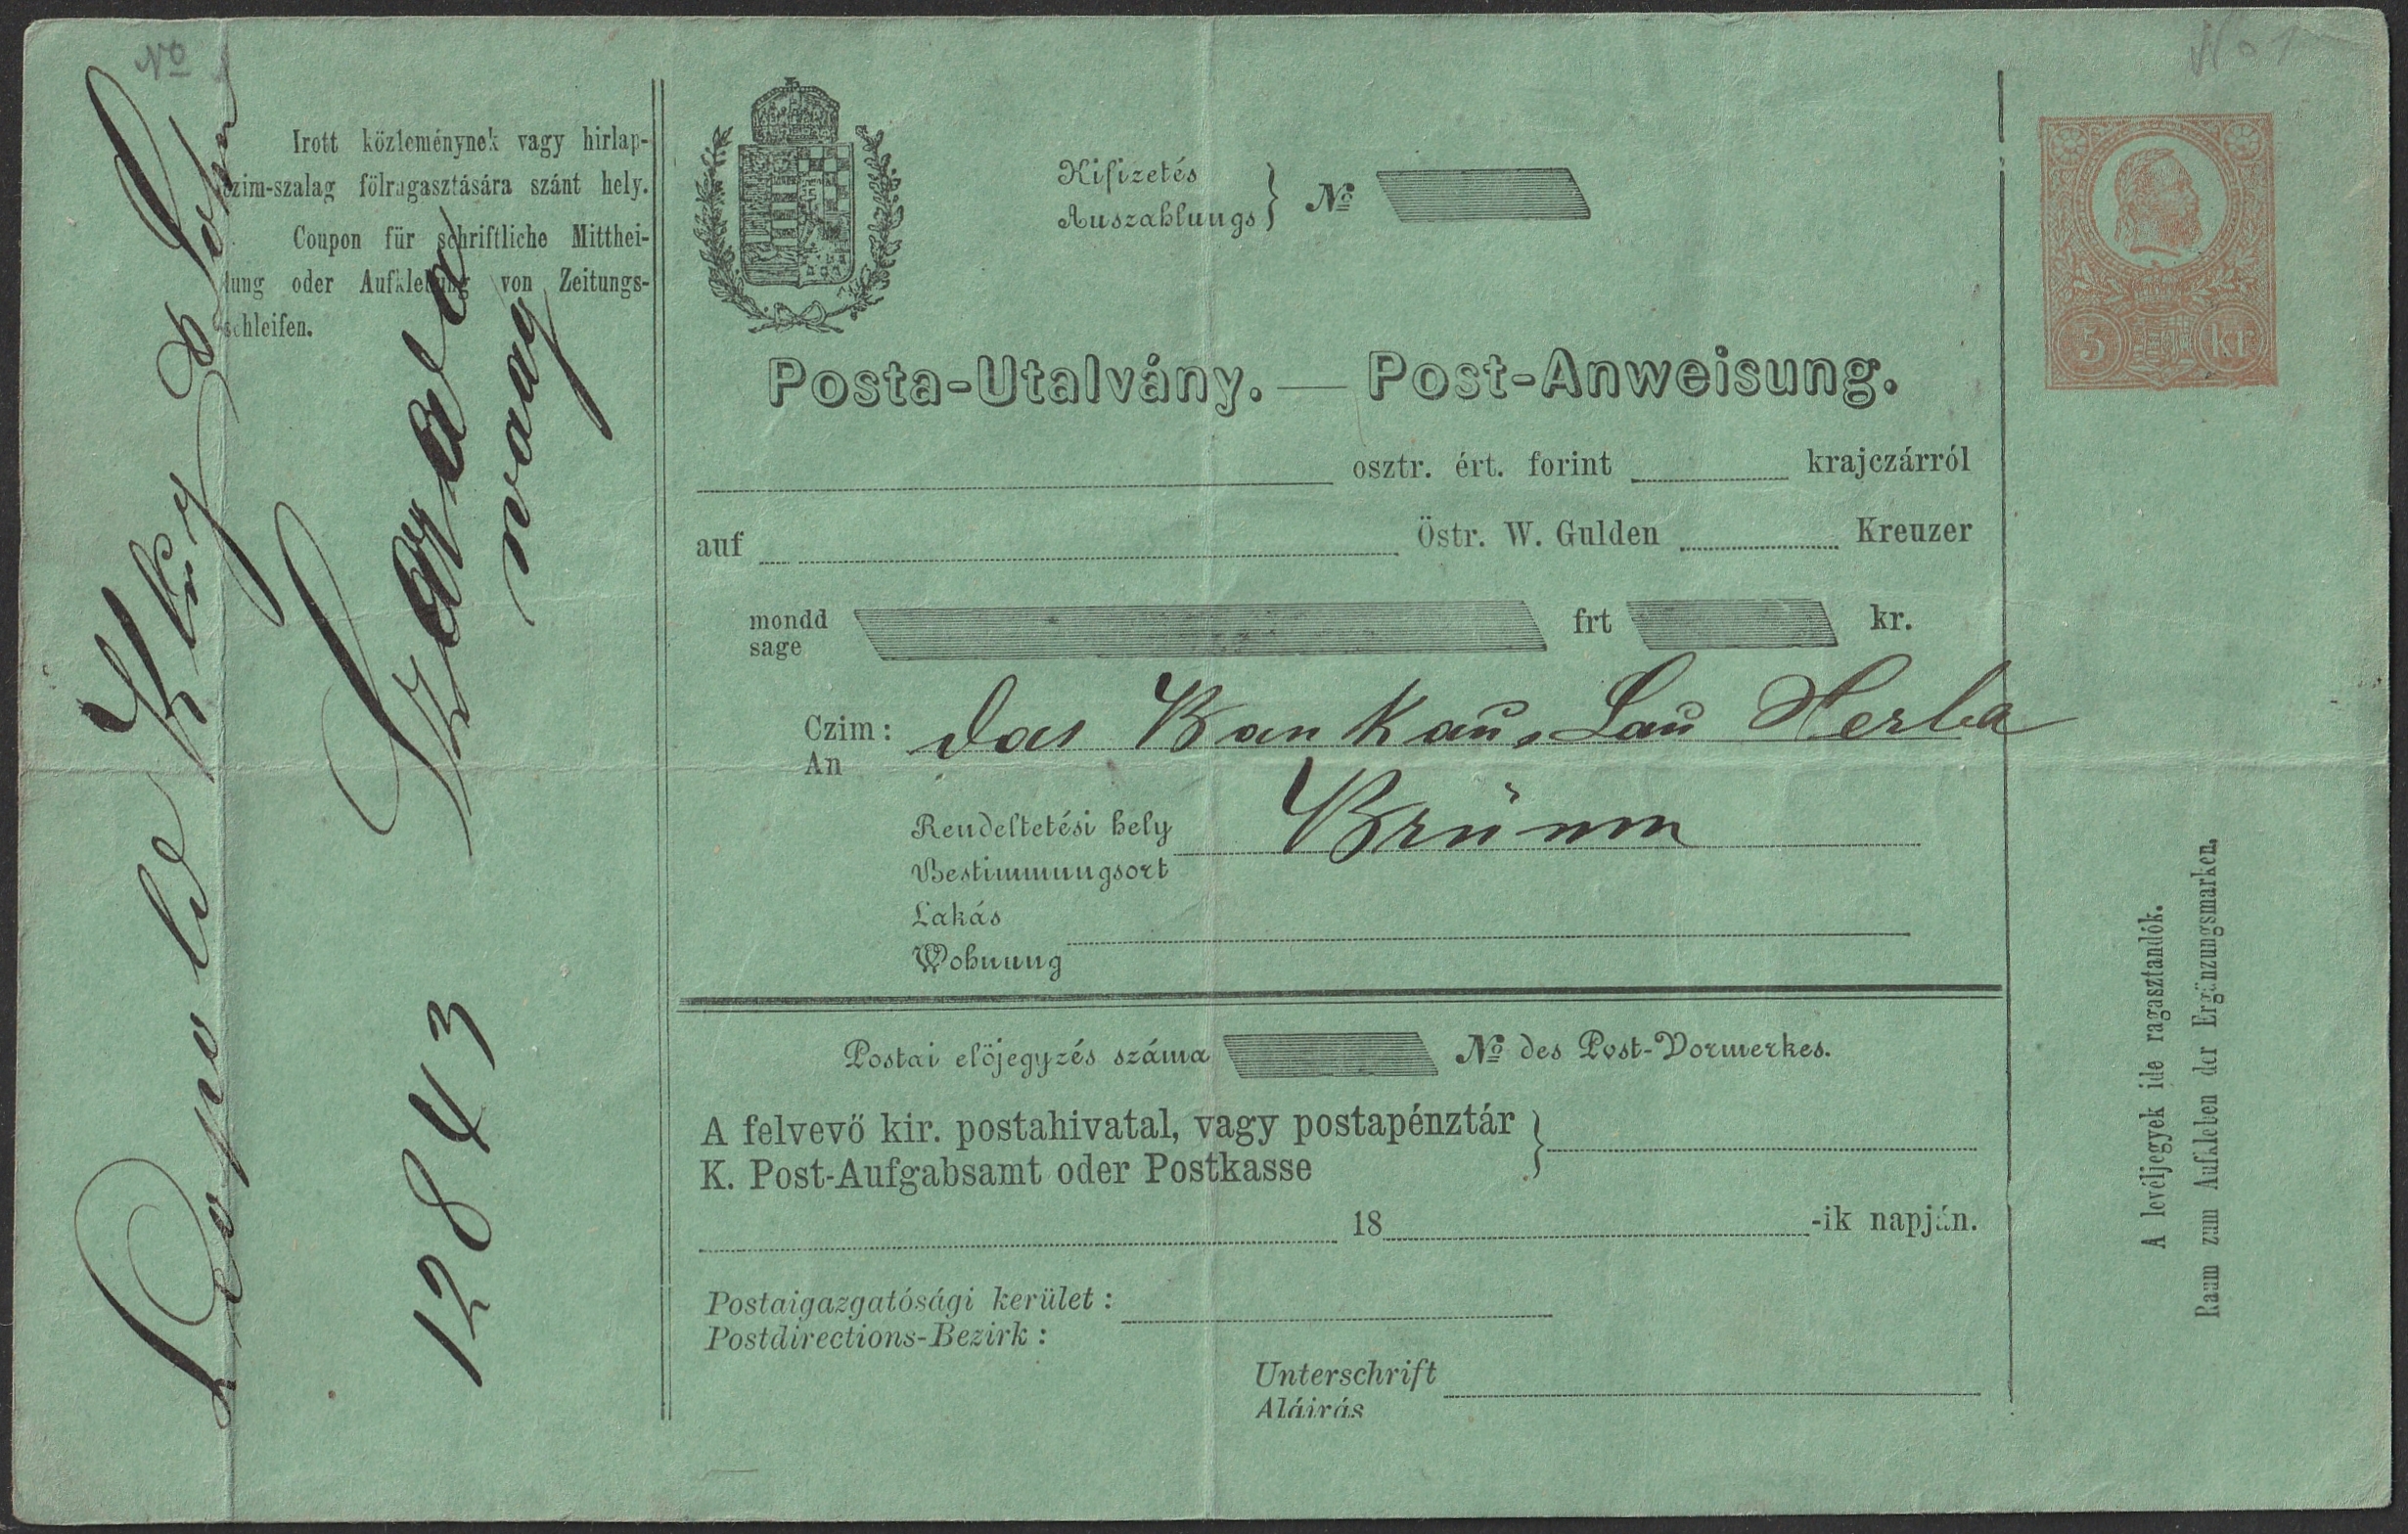 No
No 1
Irott közleménynek vagy hirlap-
czim-szalag fölragasztására szánt hely.
Coupon für schriftliche Mitthei-
lung oder Aufklebung von Zeitungs-
schleifen.
& Sohn
12843
Kifizetés
Auszahlungs } No
Posta-Utalvány. — Post-Anweisung.
osztr. ért. forint krajczárról
auf Östr. W. Gulden Kreuzer
mondd
sage frt kr.
Czim: das
An
Rendeltetési hely Brünn
Bestimmungsort
Lakás
Wohnung
Postai előjegyzés száma No des Post-Vormerkes.
A felvevő kir. postahivatal, vagy postapénztár
K. Post-Aufgabsamt oder Postkasse
18 -ik napján.
Postaigazgatósági kerület:
Postdirections-Bezirk:
Unterschrift
Aláirás
5 kr
A levéljegyek ide ragasztandók.
Raum zum Aufkleben der Ergänzungsmarken.